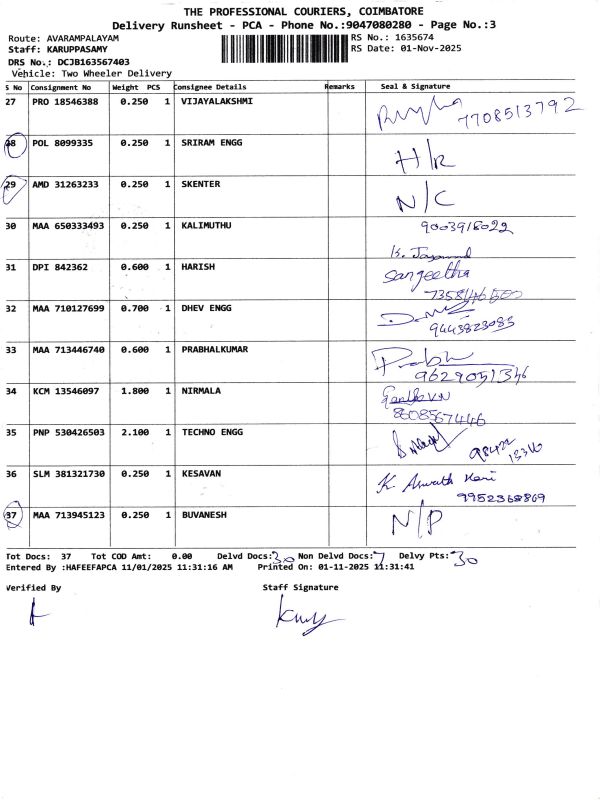 THE PROFESSIONAL COURIERS, COIMBATORE
Delivery Runsheet - PCA - Phone No.:9047080280 - Page No.:3
Route: AVARAMPALAYAM RS No.: 1635674
Staff: KARUPPASAMY RS Date: 01-Nov-2025
DRS No.: DCJB163567403
Vehicle: Two Wheeler Delivery
S No Consignment No Weight PCS Consignee Details Remarks Seal & Signature
27 PRO 18546388 0.250 1 VIJAYALAKSHMI 7708513792
28 POL 8099335 0.250 1 SRIRAM ENGG H/R
29 AMD 31263233 0.250 1 SKENTER N/C
30 MAA 650333493 0.250 1 KALIMUTHU 9003918022
31 DPI 842362 0.600 1 HARISH Sangeetha
32 MAA 710127699 0.700 1 DHEV ENGG 9443823083
33 MAA 713446740 0.600 1 PRABHALKUMAR Prabhu
9629051346
34 KCM 13546097 1.800 1 NIRMALA
8608567446
35 PNP 530426503 2.100 1 TECHNO ENGG
36 SLM 381321730 0.250 1 KESAVAN K.
9952368869
37 MAA 713945123 0.250 1 BUVANESH N/P
Tot Docs: 37 Tot COD Amt: 0.00 Delvd Docs: 30 Non Delvd Docs: 7 Delvy Pts: 30
Entered By :HAFEEFAPCA 11/01/2025 11:31:16 AM Printed On: 01-11-2025 11:31:41
Verified By Staff Signature